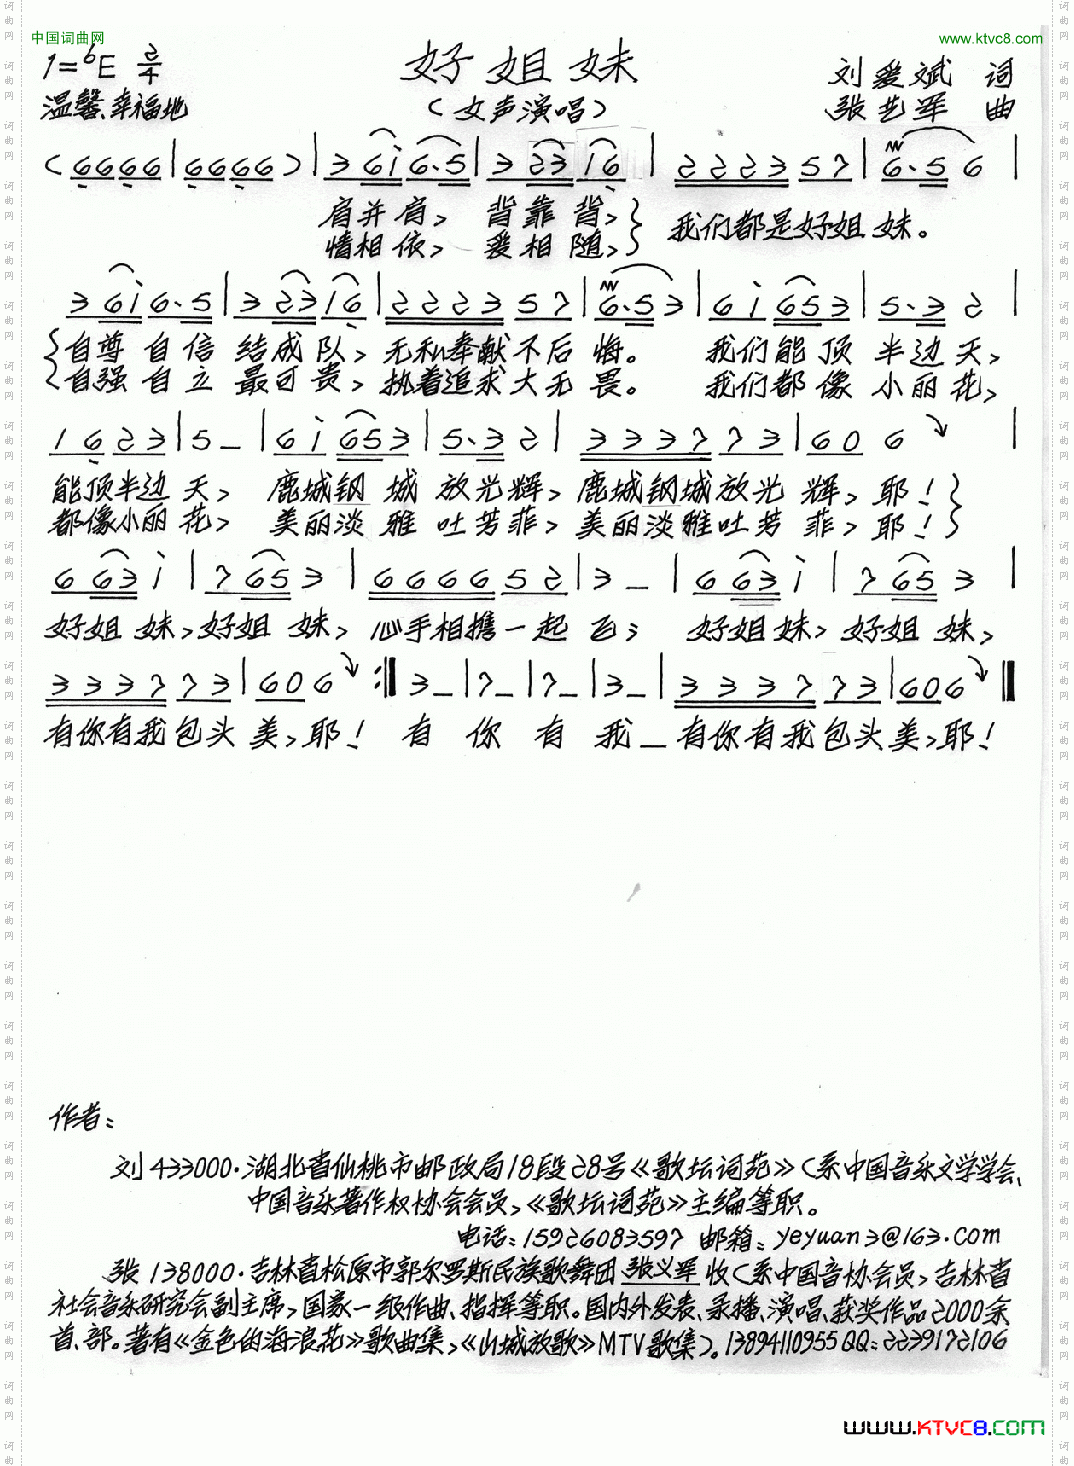 中国词曲网
www.ktvc8.com
1=♭E 2/4
好姐妹
刘爱斌 词
温馨、幸福地
（女声演唱）
张艺军 曲
（6666|6666）|3 61 6·5|3 23 16|2223 57|6·5 6|
肩并肩，背靠背，｝我们都是好姐妹。
情相依，爱相随，
3 61 6·5|3 23 16|2223 57|6·5 3|6 1 653|5·3 2|
自尊自信结成队，无私奉献不后悔。我们能顶半边天，
自强自立最可贵，执着追求大无畏。我们都像小丽花，
1 6 2 3|5 –|6 1 653|5·3 2|3337 73|60 6|
能顶半边天，鹿城钢城放光辉，鹿城钢城放光辉，耶！
都像小丽花，美丽淡雅吐芳菲，美丽淡雅吐芳菲，耶！
6 63 1|7 65 3|6666 52|3 –|6 63 1|7 65 3|
好姐妹，好姐妹，心手相携一起飞；好姐妹，好姐妹，
3337 73|60 6:‖3–|7–|7–|3–|3337 73|60 6‖
有你有我包头美，耶！有你有我–有你有我包头美，耶！
作者：
刘433000·湖北省仙桃市邮政局18段28号《歌坛词苑》（系中国音乐文学学会、
中国音乐著作权协会会员，《歌坛词苑》主编等职。
电话：15926083597 邮箱：yeyuan3@163.com
张138000·吉林省松原市郭尔罗斯民族歌舞团张义军收（系中国音协会员，吉林省
社会音乐研究会副主席，国家一级作曲、指挥等职。国内外发表、录播、演唱、获奖作品2000余
首、部。著有《金色的海浪花》歌曲集，《山城放歌》MTV歌集）。13894110955 QQ：2239172106
www.KTVC8.com